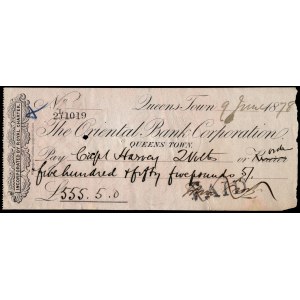 No.
2Y1019
Queens Town 9 June 1878
The Oriental Bank Corporation
QUEENS TOWN.
Pay Capt Harvey 2 Volts or order
five hundred & fifty five pounds 5/.
£555.5.0
PAID
INCORPORATED BY ROYAL CHARTER.